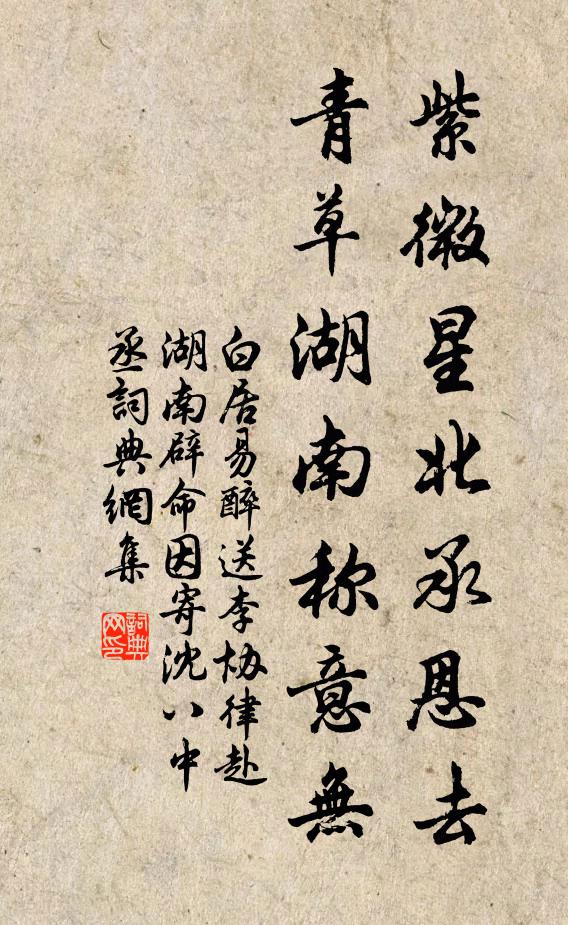 紫微星北承恩去
青草湖南称意無
白居易醉送李协律赴
湖南辟命因寄沈八中
丞詞典網集
詞典网印